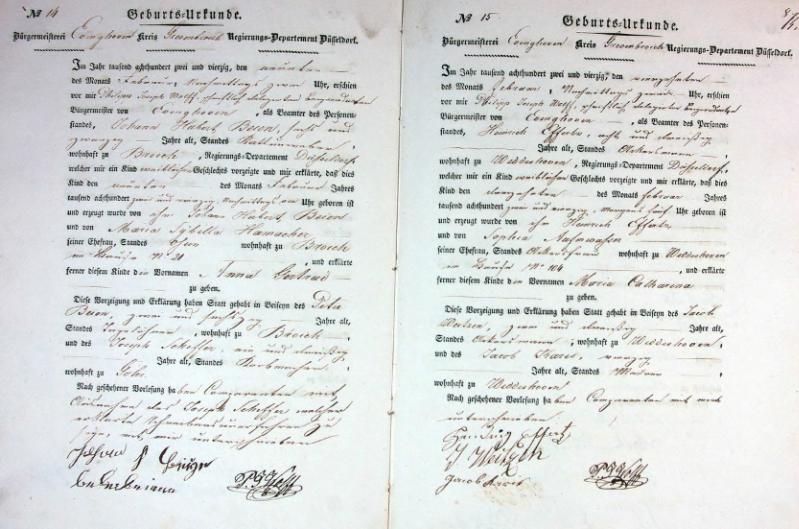 No 14
Geburts-Urkunde.
Bürgermeisterei Evinghoven Kreis Grevenbroich Regierungs-Departement Düsseldorf.
Im Jahr tausend achthundert zwei und vierzig, den neunten
des Monats Februar, Nachmittags zwei Uhr, erschien
vor mir Philipp Joseph Wolff
Bürgermeister von Evinghoven, als Beamter des Personen-
standes, Johann Hubert Beien, sechs und
zwanzig Jahre alt, Standes
wohnhaft zu Broich, Regierungs-Departement Düsseldorf,
welcher mir ein Kind weiblichen Geschlechts vorzeigte und mir erklärte, daß dies
Kind den neunten des Monats Februar Jahrs
tausend achthundert zwei und vierzig, Uhr geboren ist
und erzeugt wurde von ihm Johann Hubert Beien
und von Maria Sybilla Hamacher
seiner Ehefrau, Standes ohne wohnhaft zu Broich
im Hause No 21, und erklärte
ferner diesem Kinde den Vornamen Anna Gertrud
zu geben.
Diese Vorzeigung und Erklärung haben Statt gehabt in Beiseyn des Peter
Beien, zwei und sechszig Jahre alt,
Standes Tagelöhner, wohnhaft zu Broich,
und des Joseph Scheffer, ein und dreißig
Jahre alt, Standes
wohnhaft zu Gohr.
Nach geschehener Vorlesung haben Comparenten mit
Ausnahme des Joseph Scheffer welcher
erklärte Schreibens unerfahren zu
sein, mit mir unterschrieben
P. J. Wolff
No 15
Geburts-Urkunde.
Bürgermeisterei Evinghoven Kreis Grevenbroich Regierungs-Departement Düsseldorf.
Im Jahr tausend achthundert zwei und vierzig, den
des Monats Februar, Nachmittags Uhr, erschien
vor mir Philipp Joseph Wolff
Bürgermeister von Evinghoven, als Beamter des Personen-
standes, Heinrich Effertz, acht und dreißig
Jahre alt, Standes Ackersmann
wohnhaft zu Widdeshoven, Regierungs-Departement Düsseldorf,
welcher mir ein Kind weiblichen Geschlechts vorzeigte und mir erklärte, daß dies
Kind den des Monats Februar Jahrs
tausend achthundert zwei und vierzig, Morgens fünf Uhr geboren ist
und erzeugt wurde von ihm Heinrich Effertz
und von Sophia
seiner Ehefrau, Standes Ackersfrau wohnhaft zu Widdeshoven
im Hause No 104, und erklärte
ferner diesem Kinde den Vornamen Maria Catharina
zu geben.
Diese Vorzeigung und Erklärung haben Statt gehabt in Beiseyn des Jacob
zwei und dreißig Jahre alt,
Standes Ackersmann, wohnhaft zu Widdeshoven,
und des Jacob vierzig
Jahre alt, Standes
wohnhaft zu Widdeshoven
Nach geschehener Vorlesung haben Comparenten mit mir
unterschrieben.
Effertz
P. J. Wolff